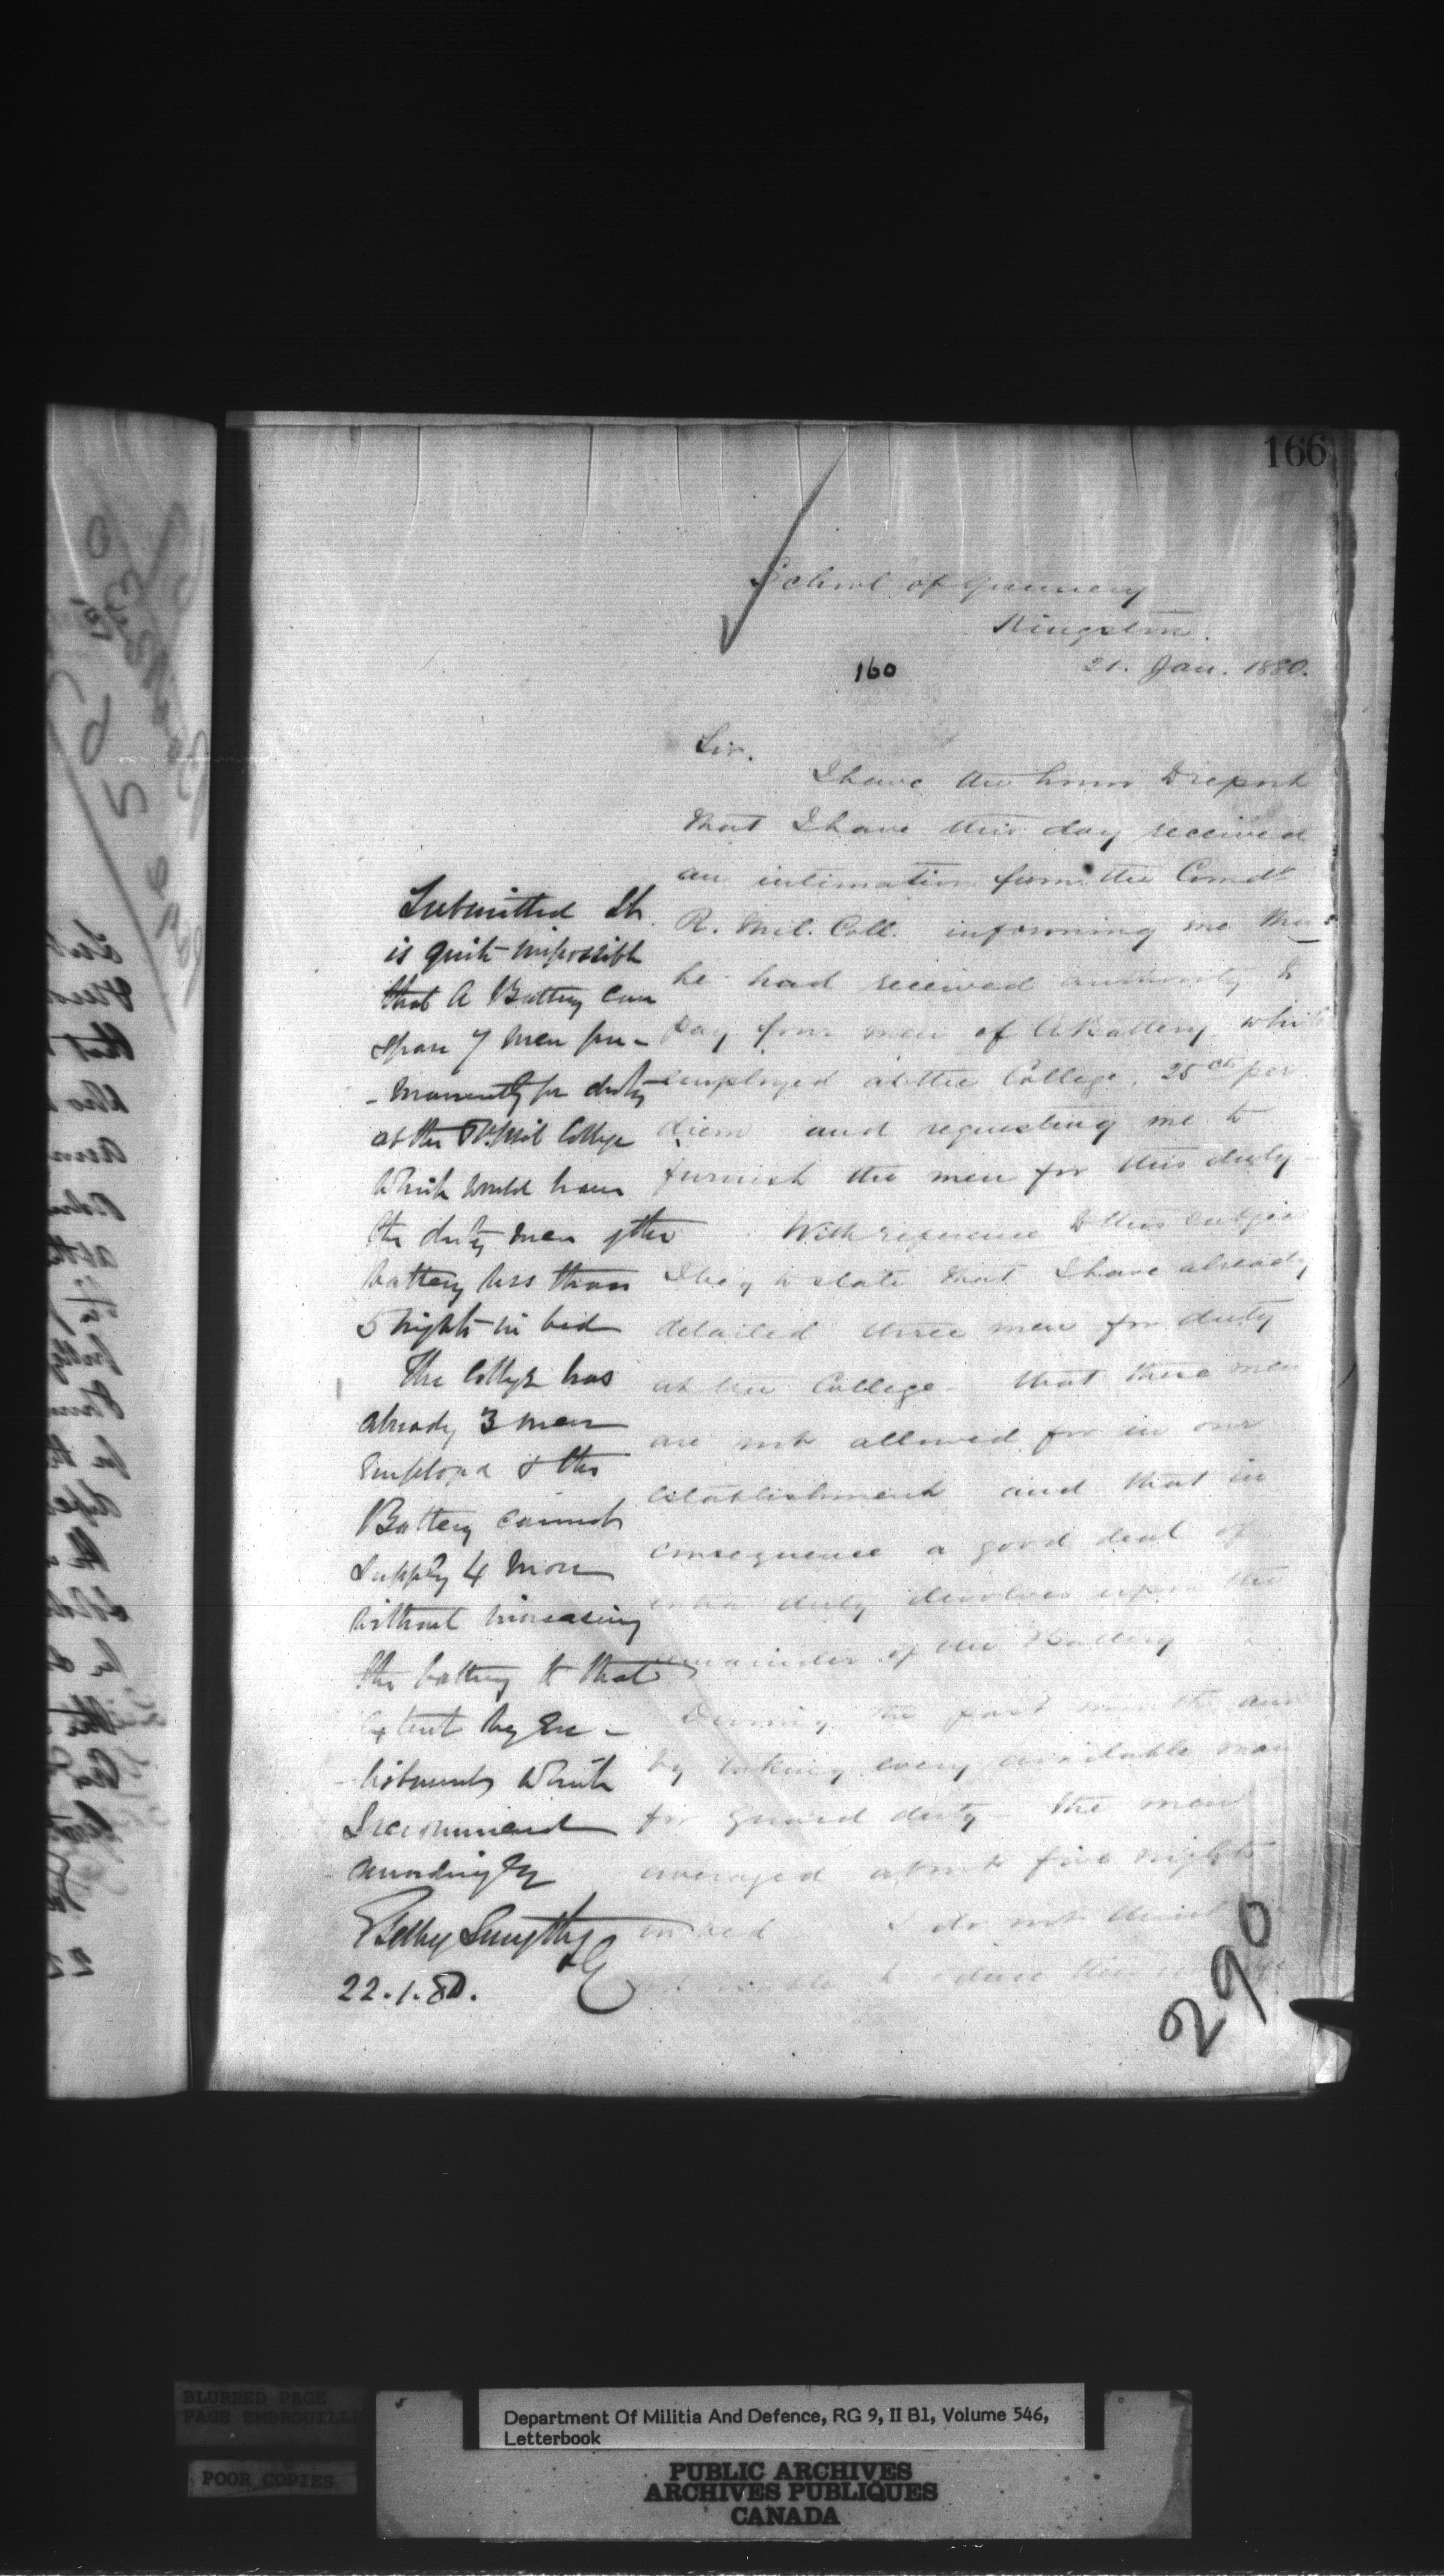 166
School of Gunnery
Kingston.
160
21. Jan. 1880.
Sir.
I have the honor to report
that I have this day received
an intimation from the Comdt
R. Mil. Coll. informing me that
he had received authority to
pay four men of A Battery while
employed at the College, 25 cts per
diem and requesting me to
furnish the men for this duty
With reference to this subject
I beg to state that I have already
detailed three men for duty
at the College - that these men
are not allowed for in our
establishment and that in
consequence a good deal of
extra duty devolves upon the
remainder of the Battery
During the past month and
by taking every available man
for guard duty the men
averaged about five nights
in bed I do not think
Submitted It
is quite impossible
that A Battery can
spare 7 men per-
-manently for duty
at the R. Mil College
which would leave
the duty men of the
battery less than
5 nights in bed
The College has
already 3 men
employed & the
Battery cannot
supply 4 more
without increasing
the battery to that
extent by en-
-listments which
I recommend
accordingly
E Selby Smyth
22.1.80.
290
BLURRED PAGE
PAGE EMBROUILLE
POOR COPIES
Department Of Militia And Defence, RG 9, II B1, Volume 546,
Letterbook
PUBLIC ARCHIVES
ARCHIVES PUBLIQUES
CANADA